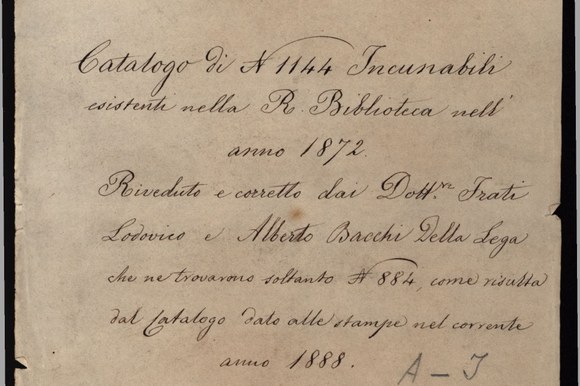 Catalogo di N 1144 Incunabili
esistenti nella R. Biblioteca nell'
anno 1872.
Riveduto e corretto dai Dott.ri Frati
Lodovico e Alberto Bacchi Della Lega
che ne trovarono soltanto N 884, come risulta
dal Catalogo dato alle stampe nel corrente
anno 1888.
A - I